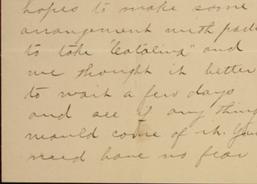 hopes to make some
arrangement with
to take "Catalina" and
we thought it better
to wait a few days
and see if any thing
would come of it. You
need have no fear